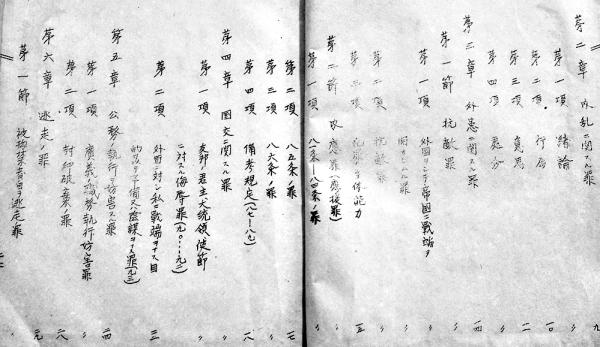 第二章 内乱ニ関スル罪 九
第一項 緒論 〃
第二項 行為 一〇
第三項 責任 〃
第四項 処分 〃
第三章 外患ニ関スル罪 一四
第一節 抗敵罪 〃
第一項 外国ヲシテ帝国ニ戦端ヲ
開カシムル罪 〃
第二項 抗敵罪 〃
第三項 一五
第二節 〃
第一項 八一条―八四条ノ罪 〃
第二項 八五条ノ罪 一七
第三項 八六条ノ罪 〃
第四項 備考規定(八七―八九) 一八
第四章 国交ニ関スル罪 〃
第一項 友邦ノ君主大統領使節
ニ対スル侮辱罪(九〇…九二) 〃
第二項 外国ニ対シ私ニ戦端ヲナス目
的ヲ以テ予備又ハ陰謀ヲナス罪(九三) 二三
第五章 公務ノ執行ヲ妨害スル罪 二四
第一項 広義公務執行妨害罪 〃
第二項 封印破棄罪 二八
第六章 逃走ノ罪 二九
第一節 被拘禁者自ラ逃走罪